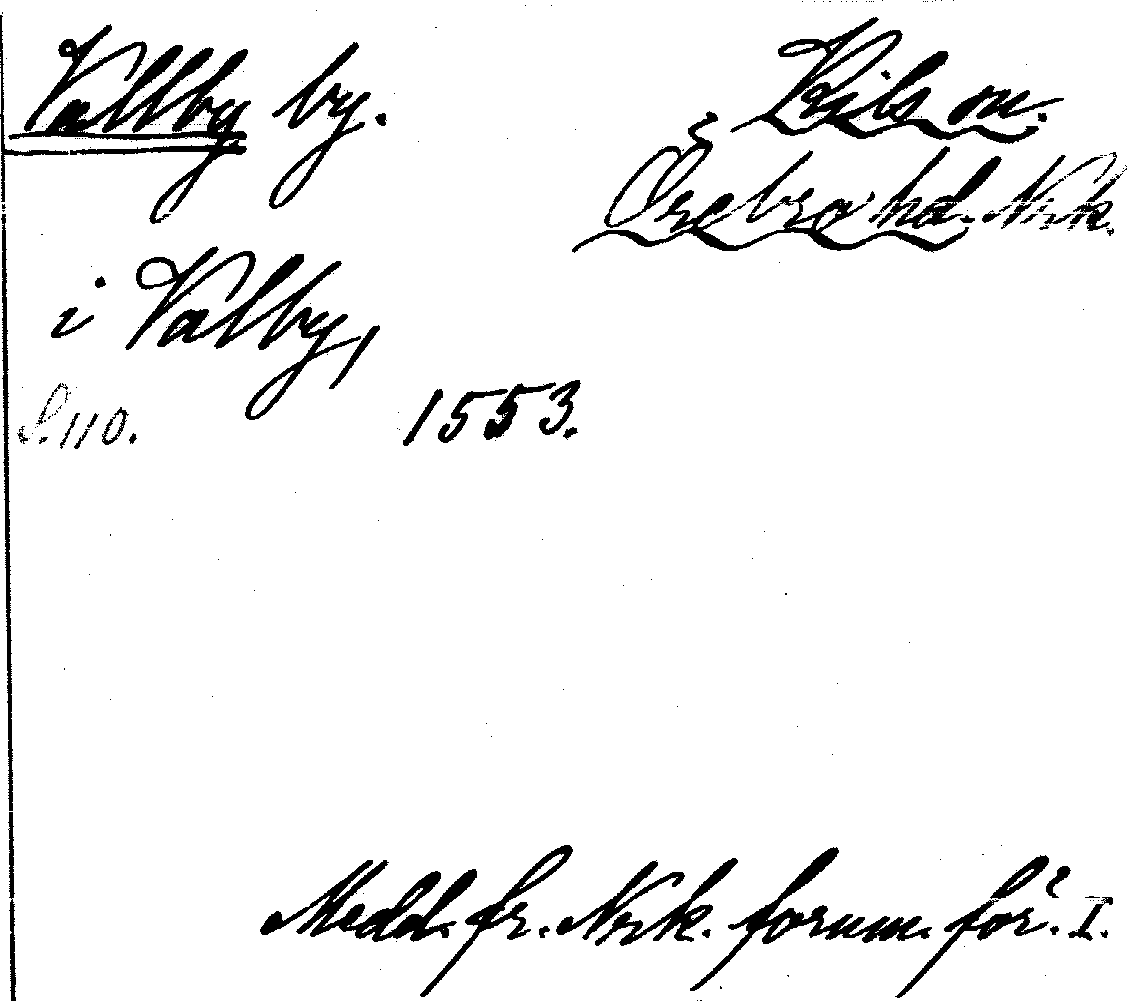 Vallby by.
Kils sn.
Örebro hd. Nrk.
i Valby,
S. 110. 1553.
Medd. fr. Nrk. fornm. för. I.